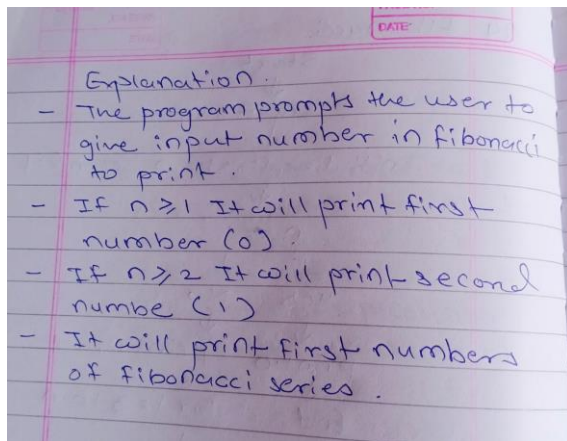 DATE
Explanation.
- The program prompts the user to
give input number in fibonacci
to print.
- If n ⩾ 1 It will print first
number (0).
- If n ⩾ 2 It will print second
numbe (1)
- It will print first numbers
of fibonacci series.